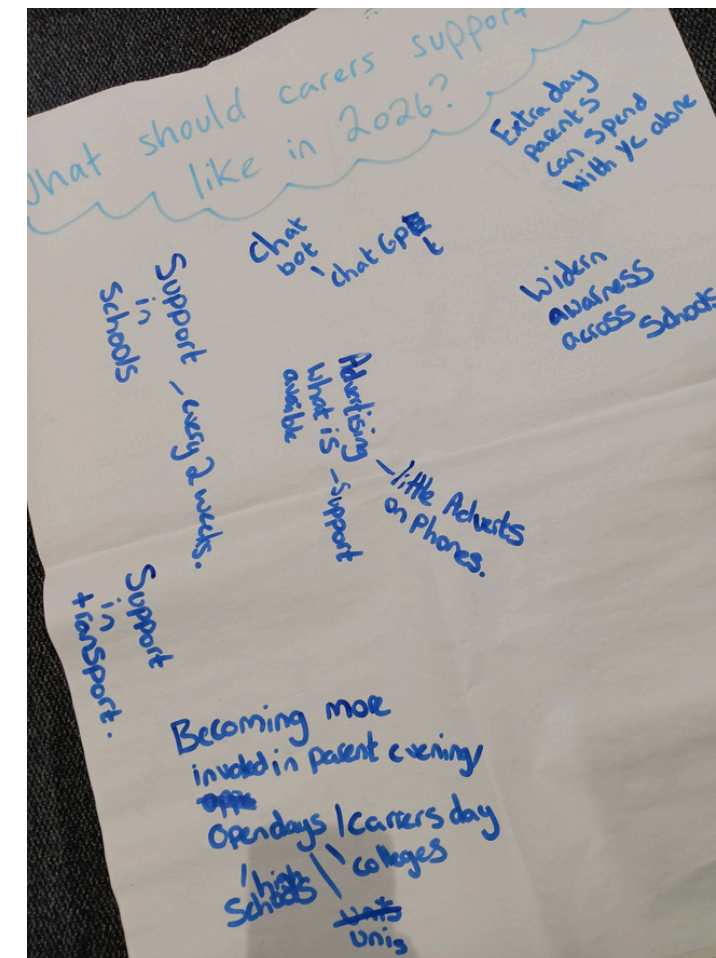 What should carers support
like in 2026?
Extra day
parents
can spend
with yc alone
Chat
bot
chat Gpt
Support
in
Schools
- every 2 weeks.
Widern
awarness
across Schools
Advertising
what is
avaible
- Support
- little Adverts
on phones.
Support
in
transport.
Becoming more
involed in parent evening/
Open days / carrers day
high
Schools
colleges
unis
unis